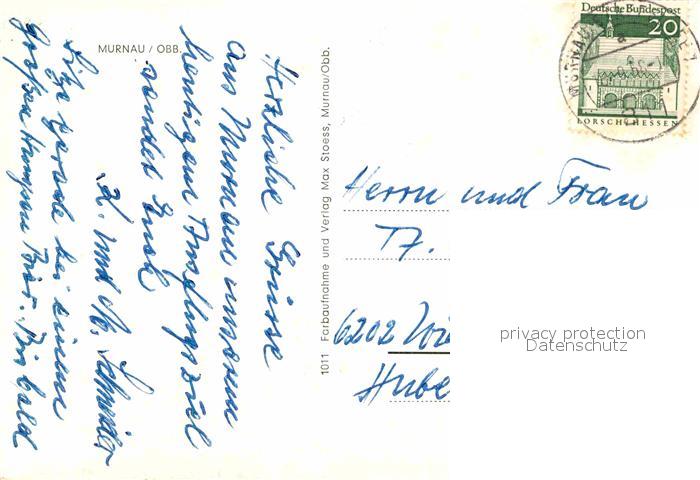 MURNAU / OBB.
Herzliche Grüsse
aus Murnau unserem
heutigem Ausflugsziel
sendet Euch
K. und M. Schneider
Sitze gerade bei einem
großen Humpen Bier. Bis bald
1011 Farbaufnahme und Verlag Max Stoess, Murnau/Obb.
Deutsche Bundespost
20
LORSCH/HESSEN
MURNAU
811
Herrn und Frau
A.
6202 Wie
Hube
privacy protection
Datenschutz